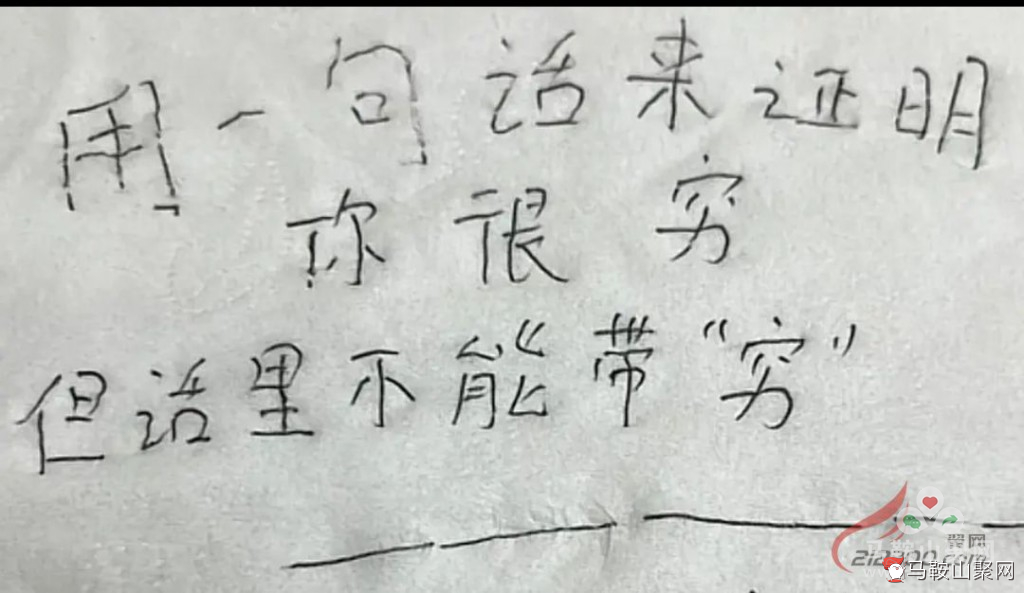 用一句话来证明
你很穷
但话里不能带“穷”
翼网
2i2300.com
马鞍山聚网